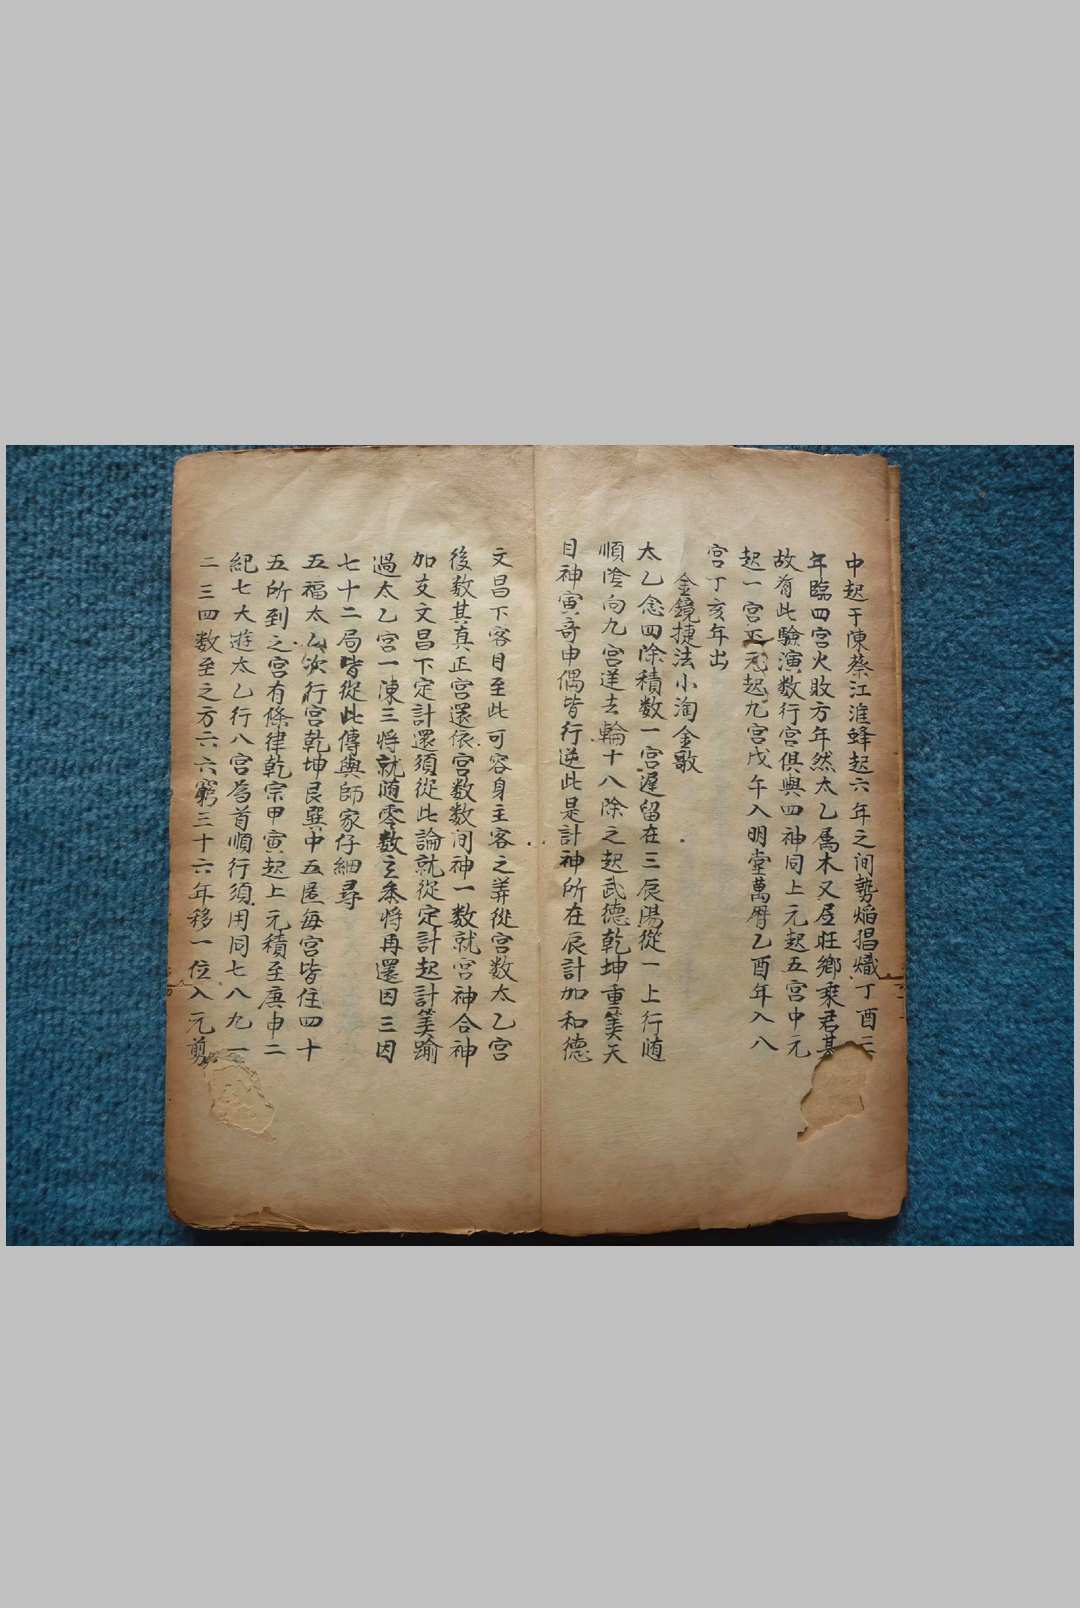 中起于陳蔡江淮蜂起六年之间勢焰猖熾丁酉三
年臨四宮火敗方年然太乙属木又居旺鄉乘君基
故有此驗演数行宮俱與四神同上元起五宮中元
起一宮下元起九宮戊午入明堂萬曆乙酉年入八
宮丁亥年出
金鏡捷法小淘金歌
太乙念四除積数一宮遲留在三辰陽從一上行随
順陰向九宮逆去輪十八除之起武德乾坤重筭天
目神寅奇申偶皆行逆此是計神所在辰計加和德
文昌下客目至此可容身主客之筭從宮数太乙宮
後数其真正宮還依宮数数间神一数就宮神合神
加支文昌下定計還須從此論就從定計起計筭踰
過太乙宮一陳三将就随零数立叅将再還因三因
七十二局皆從此傳與師家仔細尋
五福太乙次行宮乾坤艮巽中五匡每宮皆住四十
五所到之宮有條律乾宗甲寅起上元積至庚申二
紀七大遊太乙行八宮為首順行須用同七八九一
二三四数至之方六六窮三十六年移一位入元剪